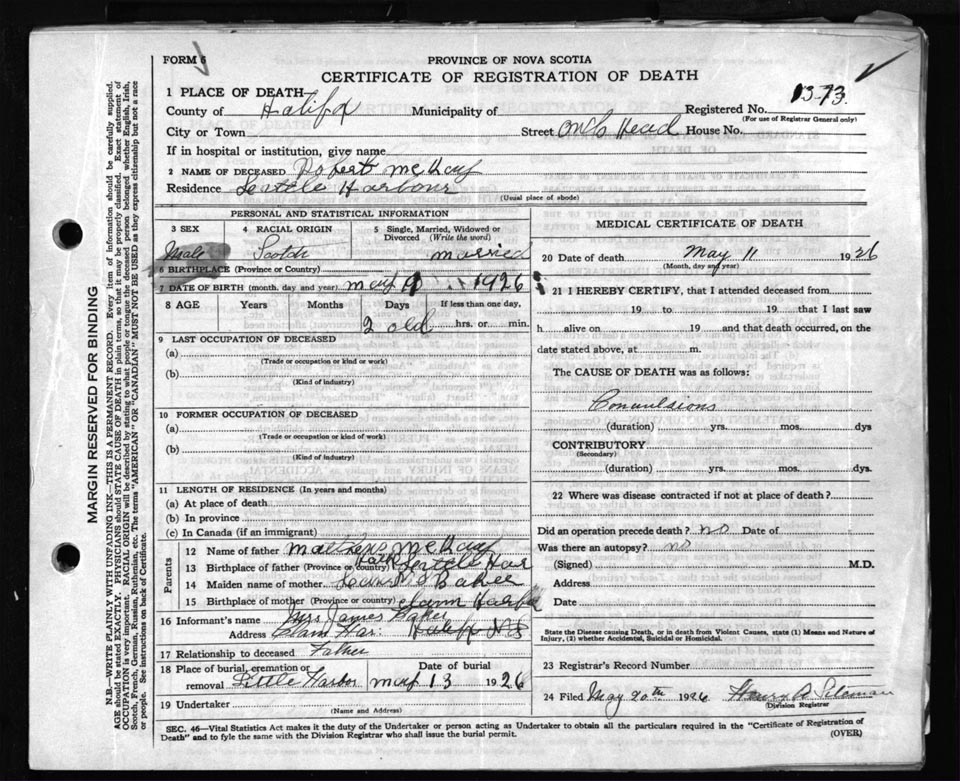 FORM 6
PROVINCE OF NOVA SCOTIA
CERTIFICATE OF REGISTRATION OF DEATH
1 PLACE OF DEATH
County of Halifax Municipality of Registered No. 1373.
(For use of Registrar General only)
City or Town Street Head House No.
If in hospital or institution, give name
2 NAME OF DECEASED Robert McKay
Residence Leittle Harbour
(Usual place of abode)
PERSONAL AND STATISTICAL INFORMATION
3 SEX
Male
4 RACIAL ORIGIN
Scotch
5 Single, Married, Widowed or Divorced (Write the word)
married
6 BIRTHPLACE (Province or Country)
7 DATE OF BIRTH (month, day and year) may 9 1926
8 AGE Years Months Days If less than one day,
2 old hrs. or min.
9 LAST OCCUPATION OF DECEASED
(a)
(Trade or occupation or kind or work)
(b)
(Kind of industry)
10 FORMER OCCUPATION OF DECEASED
(a)
(Trade or occupation or kind of work)
(b)
(Kind of industry)
11 LENGTH OF RESIDENCE (In years and months)
(a) At place of death
(b) In province
(c) In Canada (if an immigrant)
Parents
12 Name of father McKay
13 Birthplace of father (Province or country) Leittle Har
14 Maiden name of mother Baker
15 Birthplace of mother (Province or country) Clam Harbor
16 Informant's name Mrs James Baker
Address Clam Har: Halifax NS
17 Relationship to deceased Father
18 Place of burial, cremation or removal Little Harbor
Date of burial may 13 1926
19 Undertaker
(Name and Address)
MEDICAL CERTIFICATE OF DEATH
20 Date of death May 11 1926
(Month, day and year)
21 I HEREBY CERTIFY, that I attended deceased from
19 to 19 that I last saw
h alive on 19 and that death occurred, on the
date stated above, at m.
The CAUSE OF DEATH was as follows:
Convulsions
(duration) yrs. mos. dys
CONTRIBUTORY
(Secondary)
(duration) yrs. mos. dys.
22 Where was disease contracted if not at place of death?
Did an operation precede death? no Date of
Was there an autopsy? no
(Signed) M.D.
Address
Date
State the Disease causing Death, or in death from Violent Causes, state (1) Means and Nature of
Injury, (2) whether Accidental, Suicidal or Homicidal.
23 Registrar's Record Number
24 Filed May 20th 1926 Henry
Division Registrar
SEC. 46—Vital Statistics Act makes it the duty of the Undertaker or person acting as Undertaker to obtain all the particulars required in the "Certificate of Registration of
Death" and to fyle the same with the Division Registrar who shall issue the burial permit.
(OVER)
MARGIN RESERVED FOR BINDING
N.B.—WRITE PLAINLY WITH UNFADING INK—THIS IS A PERMANENT RECORD. Every item of information should be carefully supplied.
AGE should be stated EXACTLY. PHYSICIANS should STATE CAUSE OF DEATH in plain terms, so that it may be properly classified. Exact statement of
OCCUPATION is very important. RACIAL ORIGIN will be described by stating to what people or tongue the deceased person belonged whether English, Irish,
Scotch, French, German, Russian, Ruthenian, etc. The terms "AMERICAN" OR "CANADIAN" MUST NOT BE USED as they express citizenship but not a race
or people. See instructions on back of Certificate.